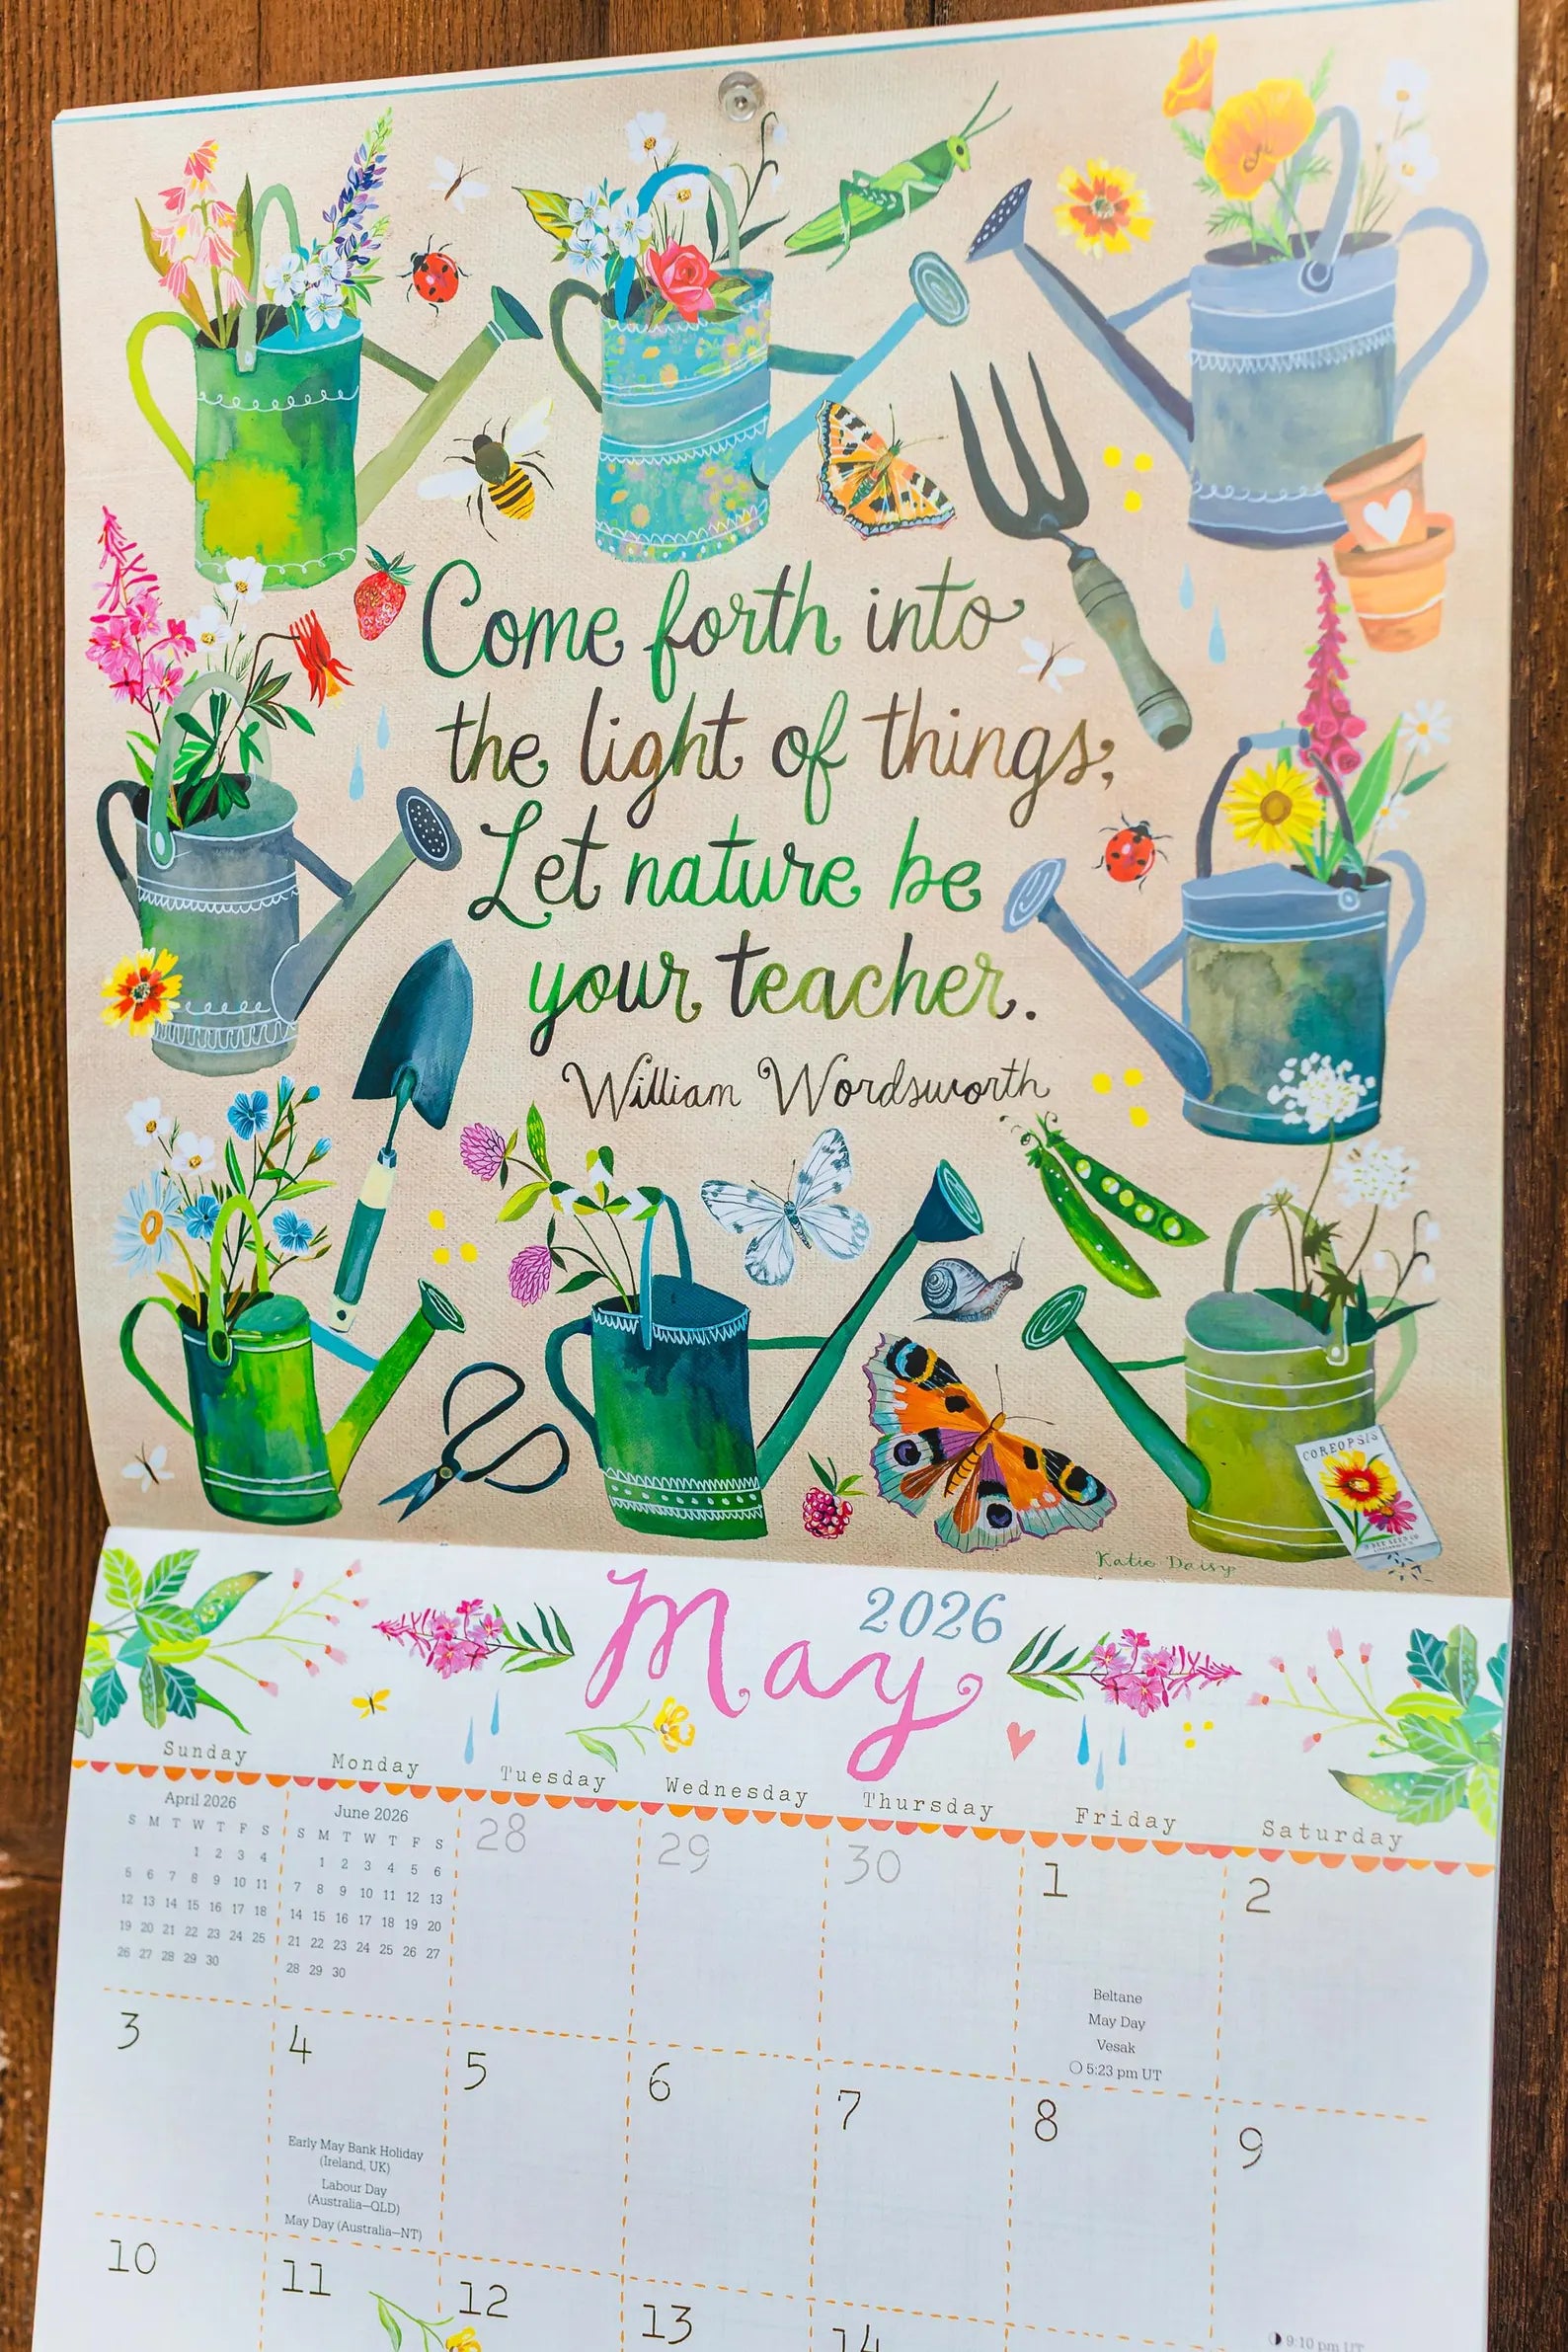 Come forth into
the light of things,
Let nature be
your teacher.
William Wordsworth
COREOPSIS
Katie Daisy
May 2026
Sunday Monday Tuesday Wednesday Thursday Friday Saturday
April 2026
S M T W T F S
1 2 3 4
5 6 7 8 9 10 11
12 13 14 15 16 17 18
19 20 21 22 23 24 25
26 27 28 29 30
June 2026
S M T W T F S
1 2 3 4 5 6
7 8 9 10 11 12 13
14 15 16 17 18 19 20
21 22 23 24 25 26 27
28 29 30
28 29 30 1 2
Beltane
May Day
Vesak
5:23 pm UT
3 4 5 6 7 8 9
Early May Bank Holiday
(Ireland, UK)
Labour Day
(Australia—QLD)
May Day (Australia—NT)
10 11 12 13 14
9:10 pm UT